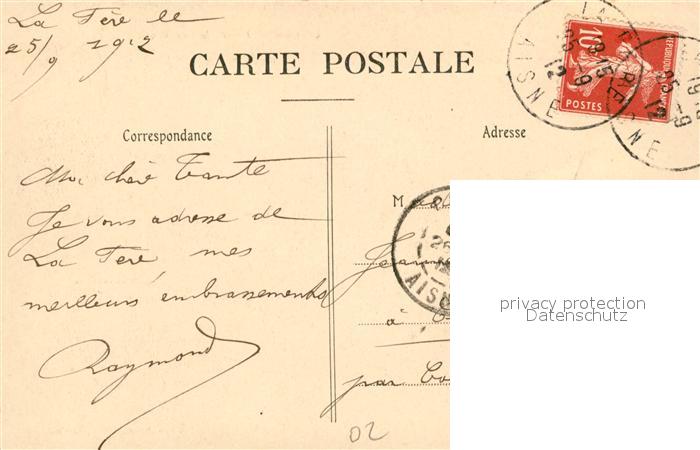 La Fère le
25/9 1912
CARTE POSTALE
Correspondance
Adresse
Ma chère Tante
Je vous adresse de
La Fère mes
meilleurs embrassements
Raymond
M
à
par
02
10
POSTES
AISNE
AISNE
privacy protection
Datenschutz